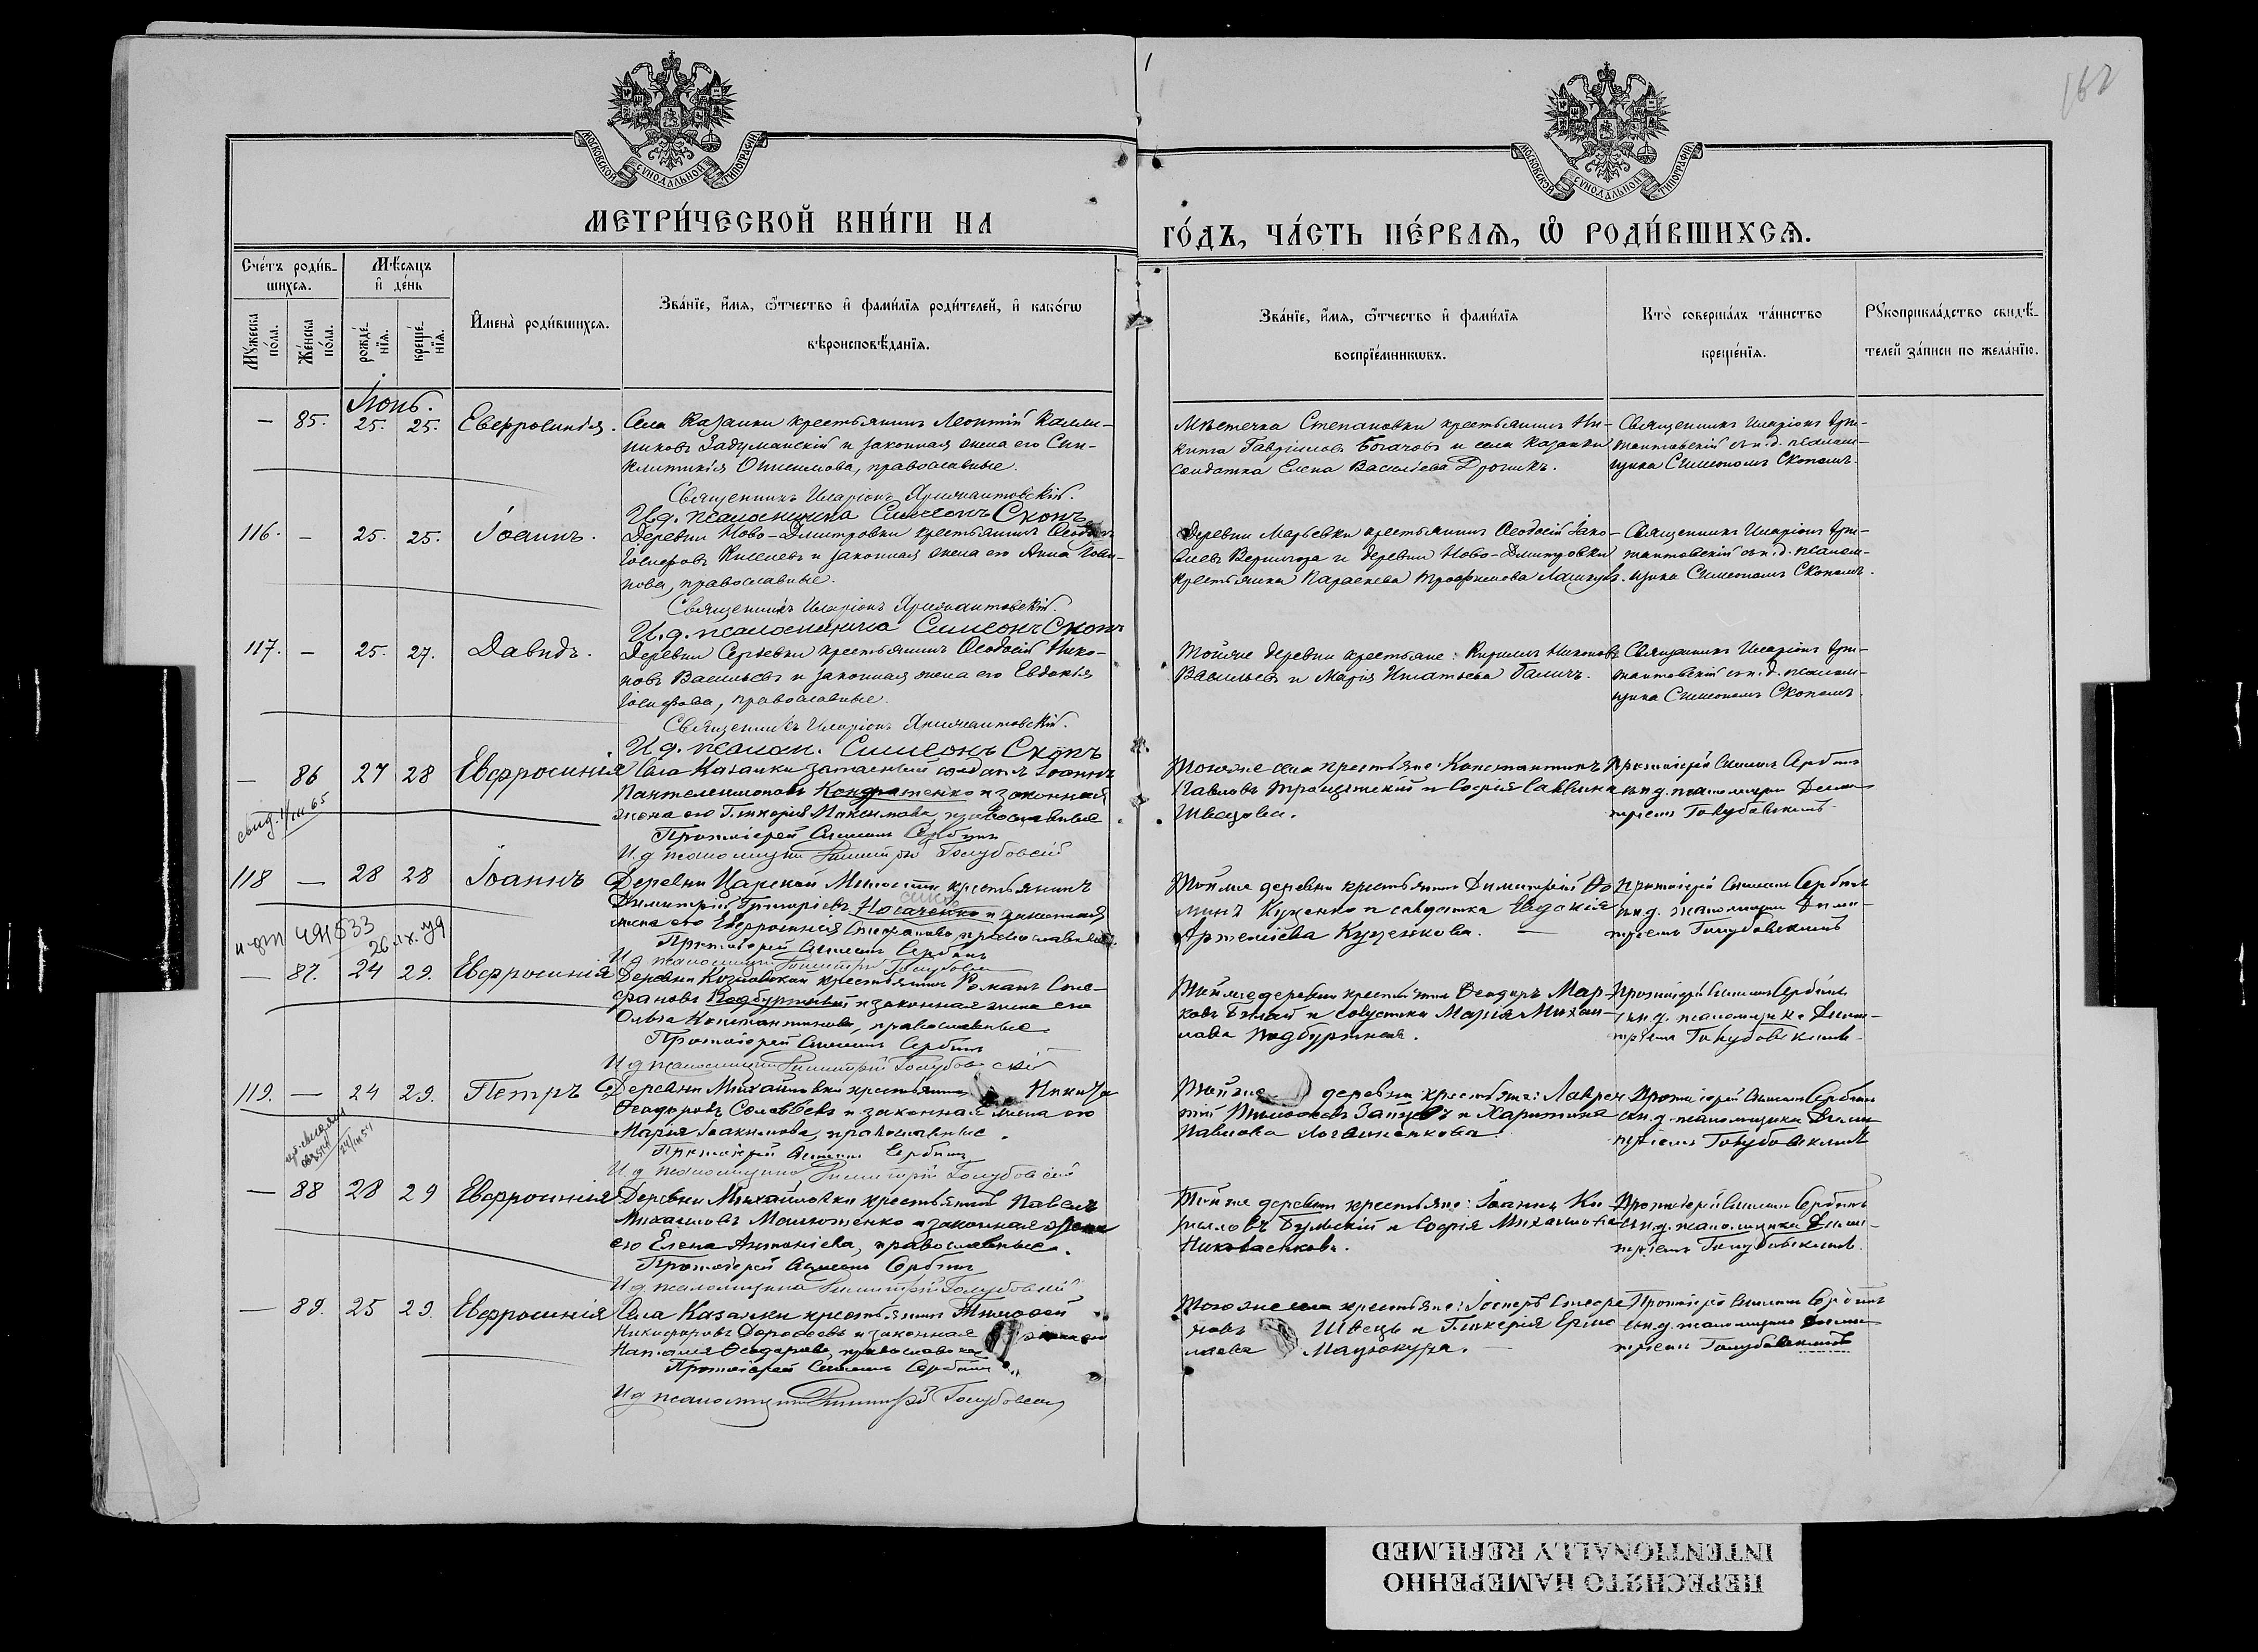 162
МОСКОВСКОЙ СѴНОДАЛЬНОЙ ТИПОГРАФІИ
МОСКОВСКОЙ СѴНОДАЛЬНОЙ ТИПОГРАФІИ
МЕТРИ́ЧЕСКОЙ КНИ́ГИ НА
ГО́ДЪ, ЧА́СТЬ ПЕ́РВАѦ, Ѡ РОДИ́ВШИХСѦ.
Сче́тъ роди́в-
шихсѧ.
Мѣ́сѧцъ
и де́нь
Мꙋжеска
по́ла.
Же́нска
по́ла.
рожде́-
нїѧ.
креще́-
нїѧ.
Имена̀ роди́вшихсѧ.
Зва́нїе, и́мѧ, ѻ́тчество и фами́лїѧ роди́телей, и како́гѡ
вѣроисповѣ́данїѧ.
Зва́нїе, и́мѧ, ѻ́тчество и фами́лїѧ
воспрїе́мникѡвъ.
Кто̀ соверша́лъ та́инство
креще́нїѧ.
Рꙋкоприкла́дство свидѣ́-
телей за́писи по жела́нїю.
Іюнь.
— 85. 25. 25. Евфросинія. Села Казанки крестьянинъ Леонтій Калли-
никовъ Задуманскій и законная жена его Син-
клитикія Онисимова, православные.
Священникъ Иларіонъ
И.д. псаломщика Симеонъ Скопъ
Мѣстечка Степановки крестьянинъ Ни-
кита Гавріиловъ Богачовъ и села Казанки
солдатка Елена Васильева
Священникъ Иларіонъ
съ и.д. псалом-
щика Симеономъ Скопомъ.
116. — 25. 25. Іоаннъ. Деревни Ново-Димитровки крестьянинъ
Іосифовъ Киселевъ и законная жена его Анна
нова, православные.
Священникъ Иларіонъ
И.д. псаломщика Симеонъ Скопъ
Деревни Марьевки крестьянинъ Ѳеодосій Іако-
влевъ Вернигора и деревни Ново-Димитровки
крестьянка Параскева Трофимова
Священникъ Иларіонъ
съ и.д. псалом-
щика Симеономъ Скопомъ.
117. — 25. 27. Давидъ. Деревни Сергѣевки крестьянинъ Ѳеодосій Нико-
новъ Васильевъ и законная жена его Евдокія
Іосифова, православные.
Священникъ Иларіонъ
И.д. псалом. Симеонъ Скопъ
Тойже деревни крестьяне: Кириллъ Никоновъ
Васильевъ и Марія Игнатьева Галичъ.
Священникъ Иларіонъ
съ и.д. псалом-
щика Симеономъ Скопомъ.
— 86 27 28 Евфросинія Села Казанки запасный солдатъ Іоаннъ
Пантелеимоновъ Кондратенко и законная
жена его Гликерія Максимова, православные
Протоіерей Симеонъ Сербинъ
И.д псаломщика Димитрій Голубовскій
Тогоже села крестьяне: Константинъ
Павловъ и Софія Саввина
Швецова.
Протоіерей Симеонъ Сербинъ
съ и.д. псаломщика Дими-
тріемъ Голубовскимъ
118 — 28 28 Іоаннъ Деревни Царской Милости крестьянинъ
Димитрій Григоріевъ Носаченко и законная
жена его Евфросинія Стефанова, православные.
Протоіерей Симеонъ Сербинъ
И.д псаломщика Димитрій Голубовскій
Тойже деревни крестьянинъ Димитрій Ѳо-
минъ Куценко и солдатка Евдокія
Артеміева Куценкова.
Протоіерей Симеонъ Сербинъ
съ и.д. псаломщика Дими-
тріемъ Голубовскимъ
— 87. 24 29. Евфросинія Деревни Козловской крестьянинъ Романъ Сте-
фановъ Подбуртный и законная жена его
Ольга Константинова, православные
Протоіерей Симеонъ Сербинъ
И.д псаломщика Димитрій Голубовскій
Тойже деревни крестьянинъ Ѳеодоръ Мар-
ковъ и солдатка Марія Михаи-
лова Подбуртная.
Протоіерей Симеонъ Сербинъ
съ и.д. псаломщика Дими-
тріемъ Голубовскимъ
119. — 24 29. Петръ Деревни Михайловки крестьянинъ Никита
Ѳеодоровъ Соловьевъ и законная жена его
Марія Іоакимова, православные.
Протоіерей Симеонъ Сербинъ
И.д псаломщика Димитрій Голубовскій
Тойже деревни крестьяне: Лаврен-
тій Тимоѳеевъ Зайцевъ и Харитина
Павлова Логвиненкова.
Протоіерей Симеонъ Сербинъ
съ и.д. псаломщика Дими-
тріемъ Голубовскимъ
— 88 28 29 Евфросинія Деревни Михайловки крестьянинъ Павелъ
Михаиловъ и законная жена
его Елена Антоніева, православные.
Протоіерей Симеонъ Сербинъ
И.д псаломщика Димитрій Голубовскій
Тойже деревни крестьяне: Іоаннъ Ки-
рилловъ и Софія Михаилова
Протоіерей Симеонъ Сербинъ
съ и.д. псаломщика Дими-
тріемъ Голубовскимъ
— 89. 25 29. Евфросинія Села Казанки крестьянинъ Тимоѳей
Никифоровъ Дороѳеевъ и законная жена его
Наталія Ѳеодорова, православные
Протоіерей Симеонъ Сербинъ
И.д псаломщика Димитрій Голубовскій
Тогоже села крестьяне: Іосифъ Стефа-
новъ Швецъ и Гликерія Ермо-
лаева Мацокура.
Протоіерей Симеонъ Сербинъ
съ и.д. псаломщика Дими-
тріемъ Голубовскимъ
ПЕРЕСНЯТО НАМЕРЕННО
INTENTIONALLY REFILMED